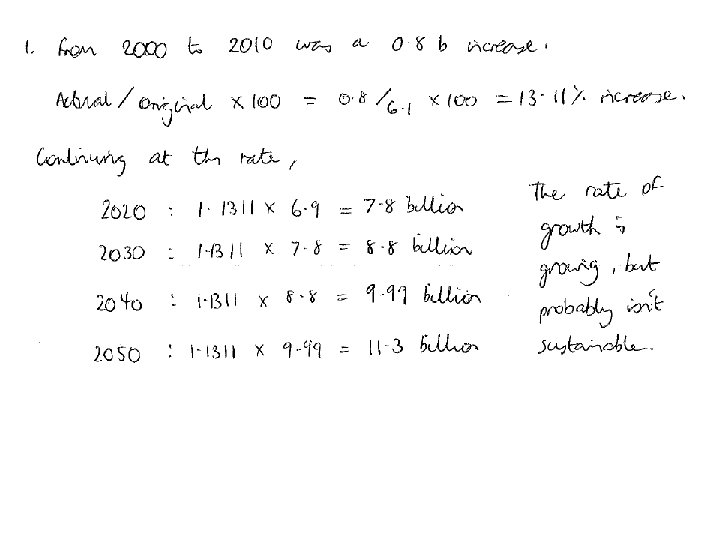 1. From 2000 to 2010 was a 0.8 b increase.
Actual/original × 100 = 0.8/6.1 × 100 = 13.11% increase.
Continuing at this rate,
2020 : 1.1311 × 6.9 = 7.8 billion
2030 : 1.1311 × 7.8 = 8.8 billion
2040 : 1.1311 × 8.8 = 9.99 billion
2050 : 1.1311 × 9.99 = 11.3 billion
The rate of
growth is
growing, but
probably isn't
sustainable.